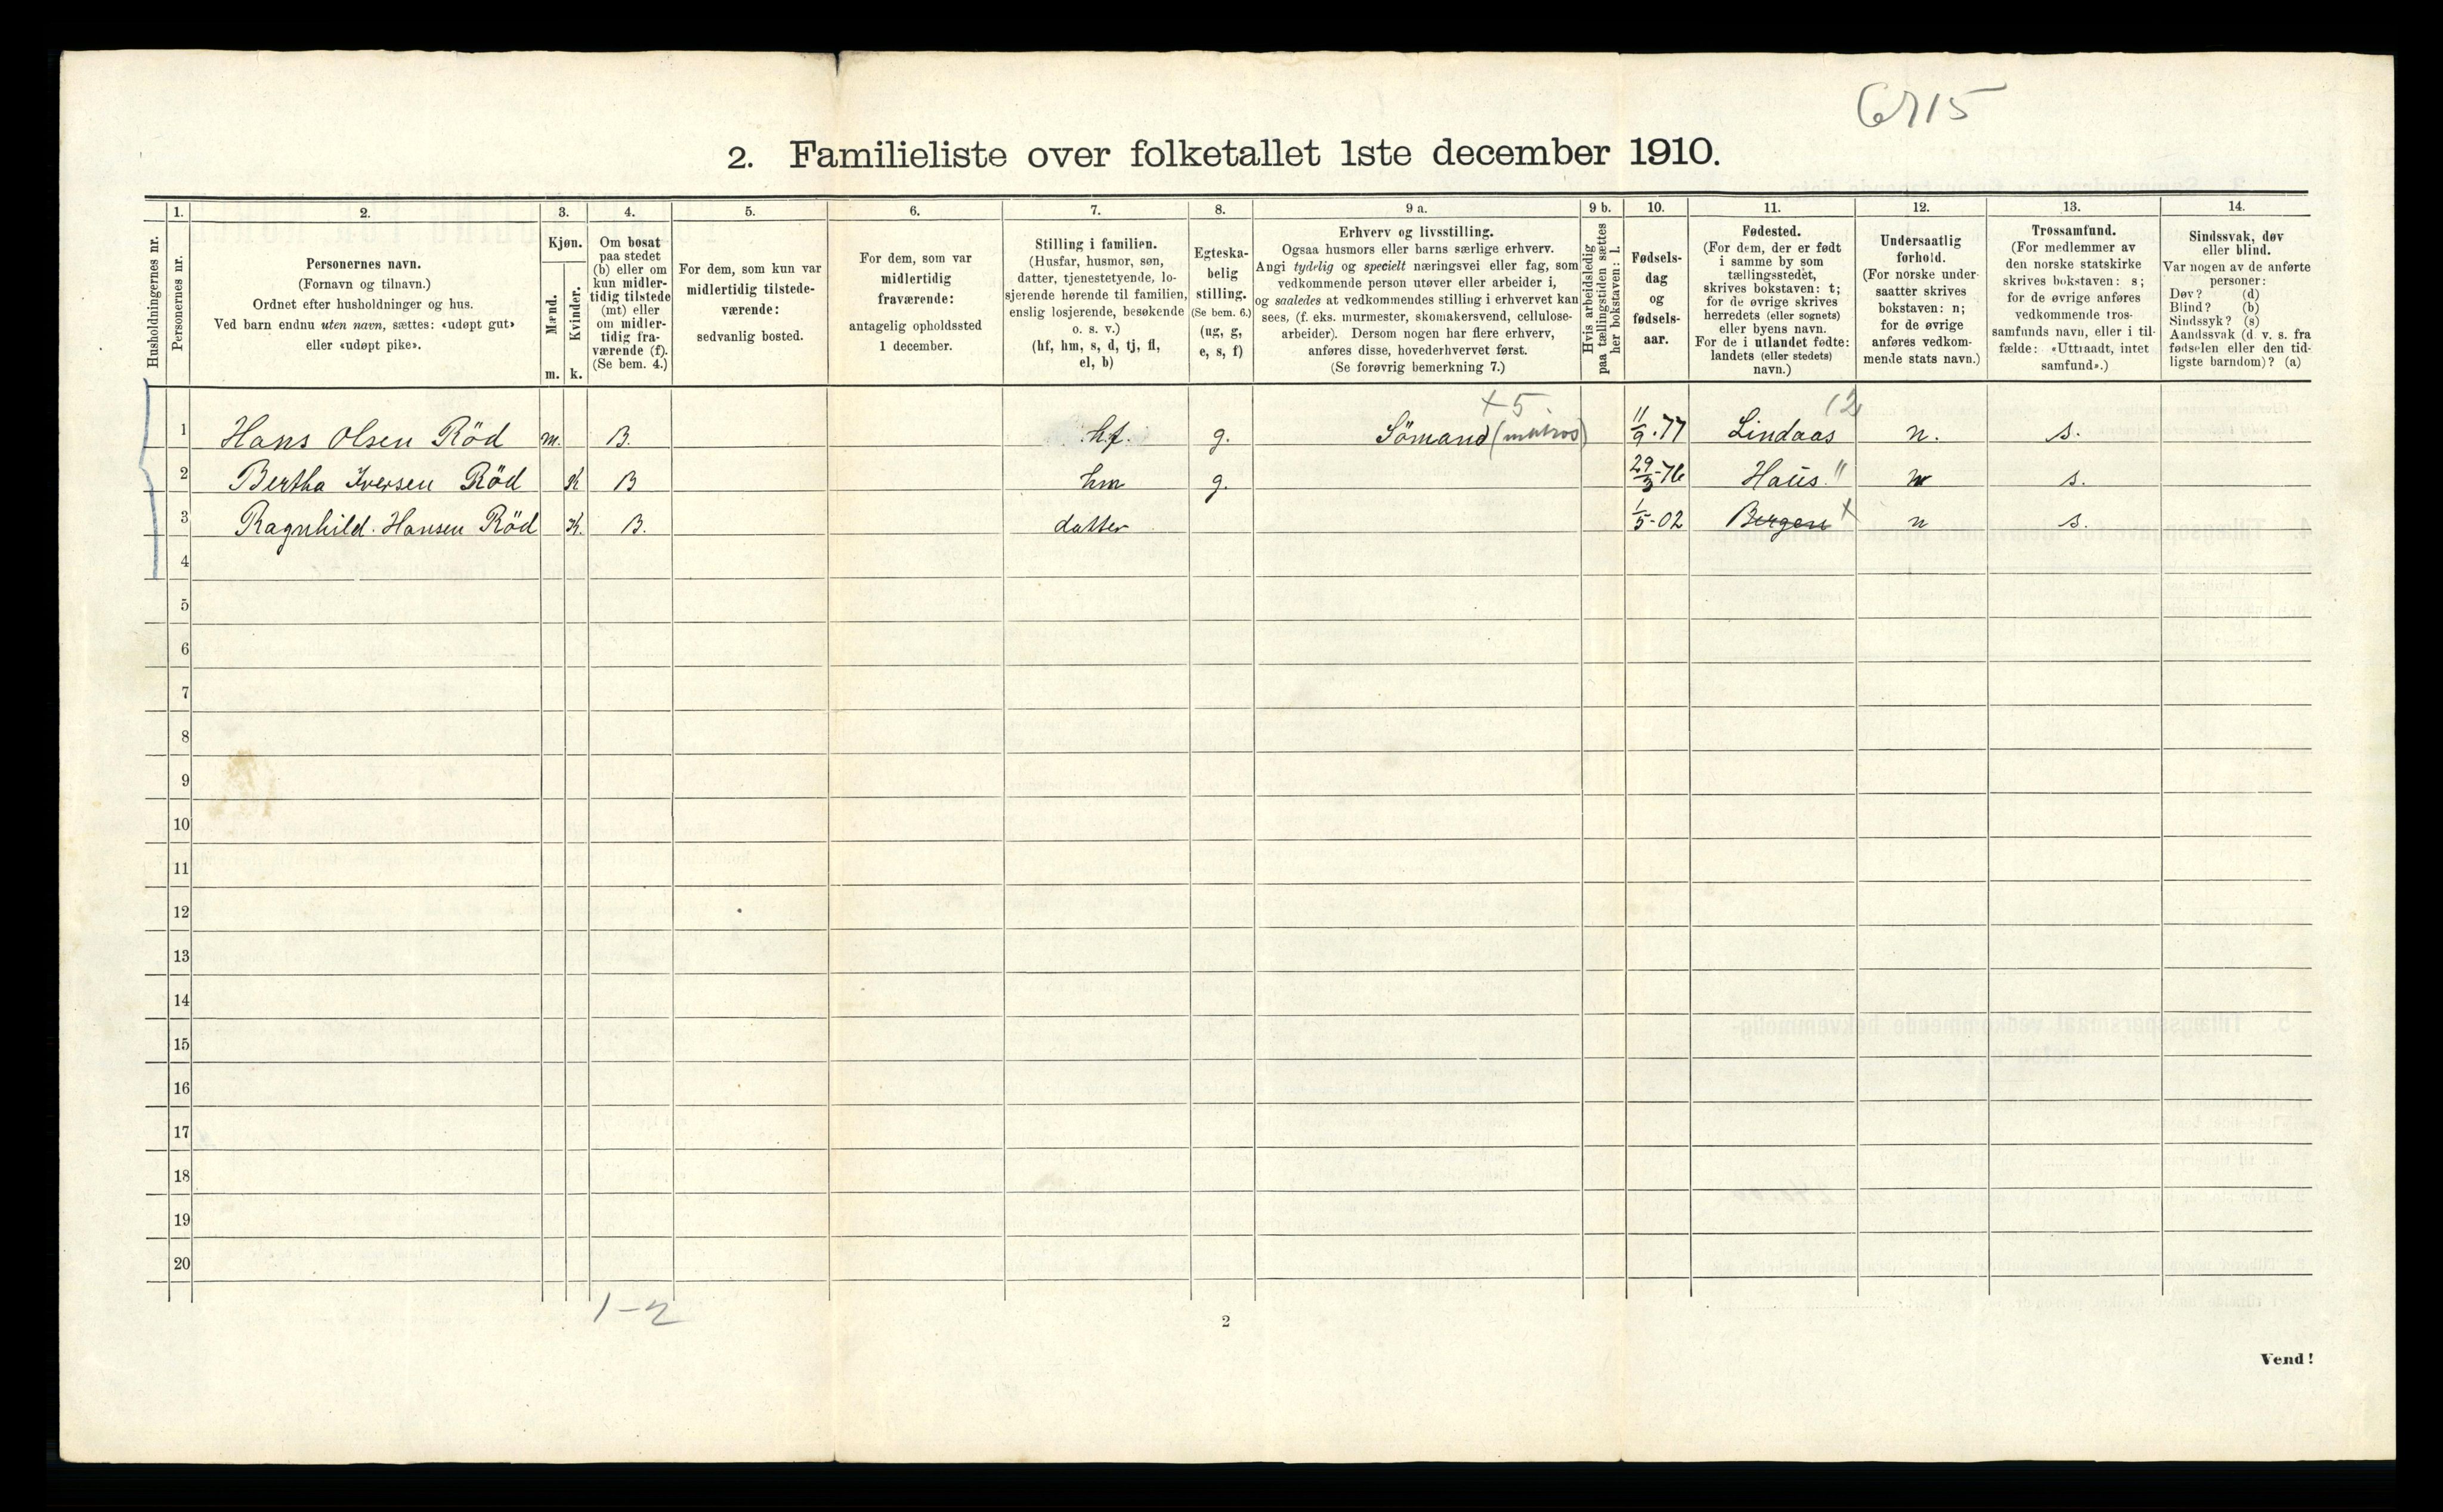 6715
2. Familieliste over folketallet 1ste december 1910.
1. 2. 3. 4. 5. 6. 7. 8. 9 a. 9 b. 10. 11. 12. 13. 14.
Husholdningernes nr.
Personernes nr.
Personernes navn.
(Fornavn og tilnavn.)
Ordnet efter husholdninger og hus.
Ved barn endnu uten navn, sættes: «udøpt gut»
eller «udøpt pike».
Kjøn.
Mænd.
Kvinder.
m. k.
Om bosat
paa stedet
(b) eller om
kun midler-
tidig tilstede
(mt) eller
om midler-
tidig fra-
værende (f).
(Se bem. 4.)
For dem, som kun var
midlertidig tilstede-
værende:
sedvanlig bosted.
For dem, som var
midlertidig
fraværende:
antagelig opholdssted
1 december.
Stilling i familien.
(Husfar, husmor, søn,
datter, tjenestetyende, lo-
sjerende hørende til familien,
enslig losjerende, besøkende
o. s. v.)
(hf, hm, s, d, tj, fl,
el, b)
Egteska-
belig
stilling.
(Se bem. 6.)
(ug, g,
e, s, f)
Erhverv og livsstilling.
Ogsaa husmors eller barns særlige erhverv.
Angi tydelig og specielt næringsvei eller fag, som
vedkommende person utøver eller arbeider i,
og saaledes at vedkommendes stilling i erhvervet kan
sees, (f. eks. murmester, skomakersvend, cellulose-
arbeider). Dersom nogen har flere erhverv,
anføres disse, hovederhvervet først.
(Se forøvrig bemerkning 7.)
Hvis arbeidsledig
paa tællingstiden sættes
her bokstaven: l.
Fødsels-
dag
og
fødsels-
aar.
Fødested.
(For dem, der er født
i samme by som
tællingsstedet,
skrives bokstaven: t;
for de øvrige skrives
herredets (eller sognets)
eller byens navn.
For de i utlandet fødte:
landets (eller stedets)
navn.)
Undersaatlig
forhold.
(For norske under-
saatter skrives
bokstaven: n;
for de øvrige
anføres vedkom-
mende stats navn.)
Trossamfund.
(For medlemmer av
den norske statskirke
skrives bokstaven: s;
for de øvrige anføres
vedkommende tros-
samfunds navn, eller i til-
fælde: «Uttraadt, intet
samfund».)
Sindssvak, døv
eller blind.
Var nogen av de anførte
personer:
Døv? (d)
Blind? (b)
Sindssyk? (s)
Aandssvak (d. v. s. fra
fødselen eller den tid-
ligste barndom)? (a)
+5. 12
1 Hans Olsen Röd m. B. hf. g. Sömand (matros) 11/9-77 Lindaas n. s.
2 Bertha Iversen Röd K B hm g. 29/3-76 Haus." n s.
3 Ragnhild. Hansen Röd K. B. datter 1/5-02 Bergen x n s.
4
5
6
7
8
9
10
11
12
13
14
15
16
17
18
19
20
1-2
2
Vend!